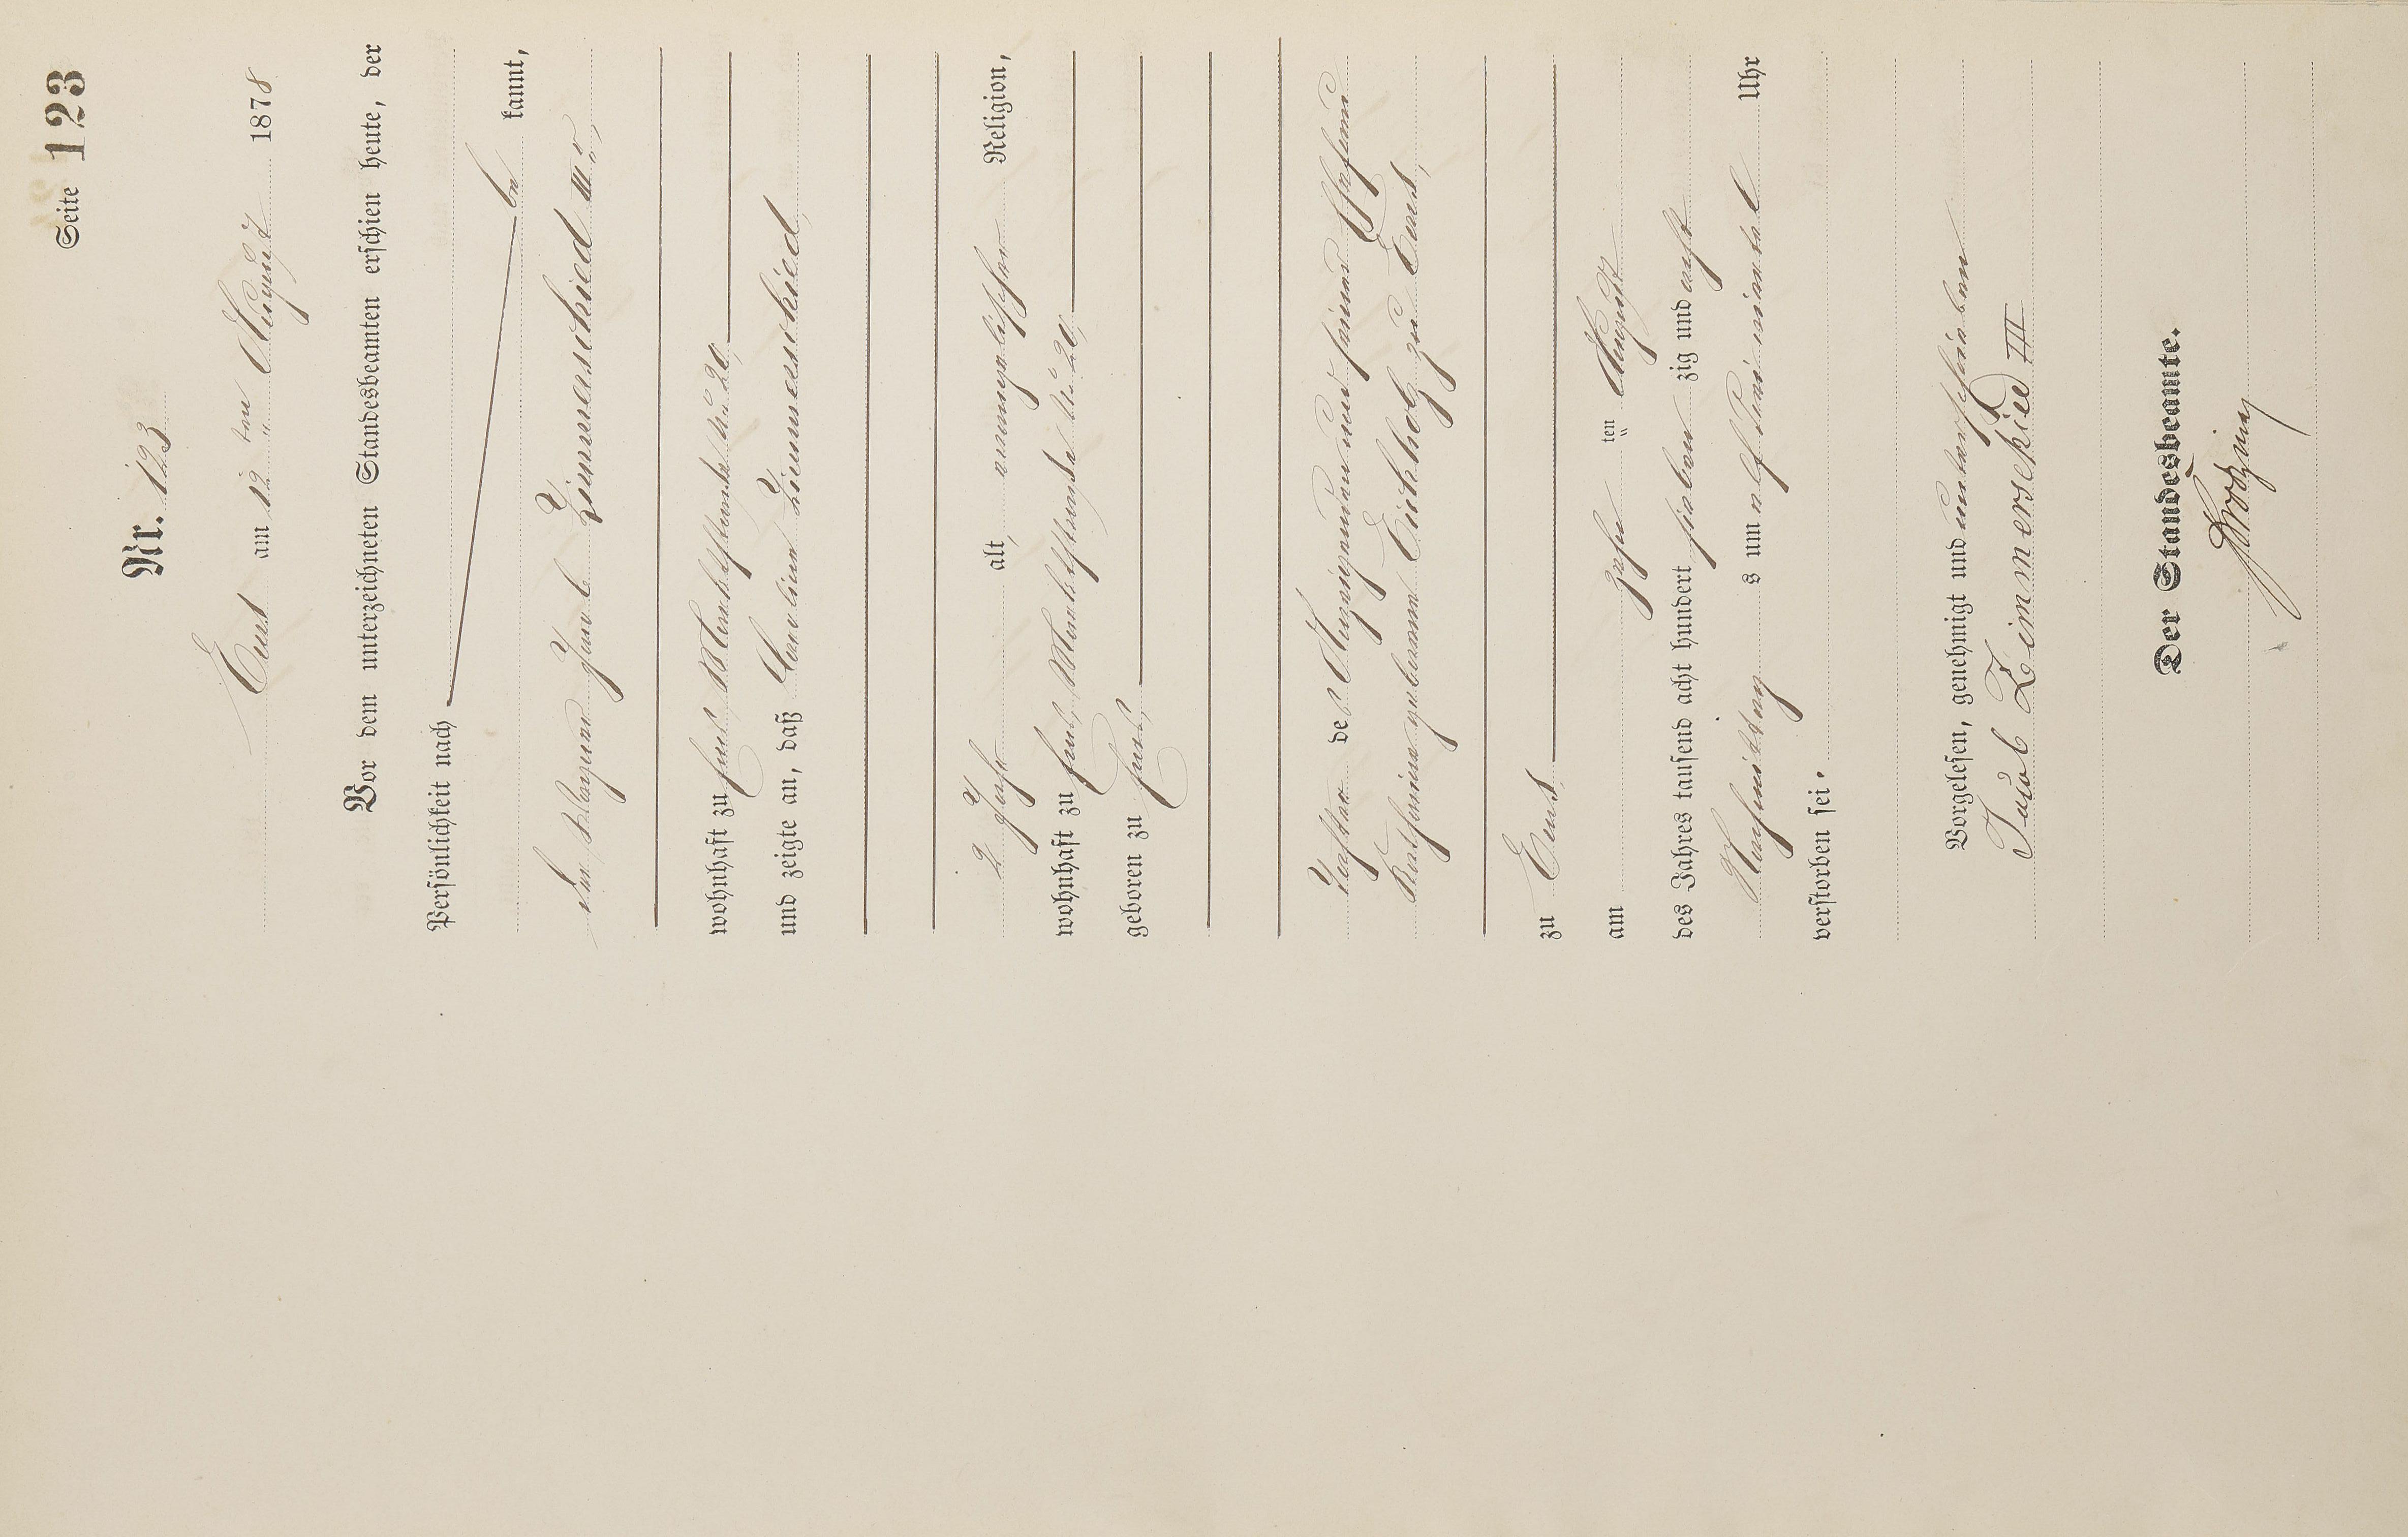 Seite 123
Nr. 123
Ems am 12 ten August 1878
Vor dem unterzeichneten Standesbeamten erschien heute, der
Persönlichkeit nach
be kannt,
der Jacob Zimmerschied III.,
wohnhaft zu Ems, No 20,
und zeigte an, daß Karoline Zimmerschied
2 Jahre alt, evangelischer Religion,
wohnhaft zu Ems, No 20,
geboren zu Ems,
Tochter des Anzeigenden und seiner Ehefrau
geborenen Eichholz zu Ems,
zu Ems
am zehn ten August
des Jahres tausend acht hundert sieben zig und acht
Nachmittags um elf drei viertel Uhr
verstorben sei.
Vorgelesen, genehmigt und unterschrieben
Jacob Zimmerschied III
Der Standesbeamte.